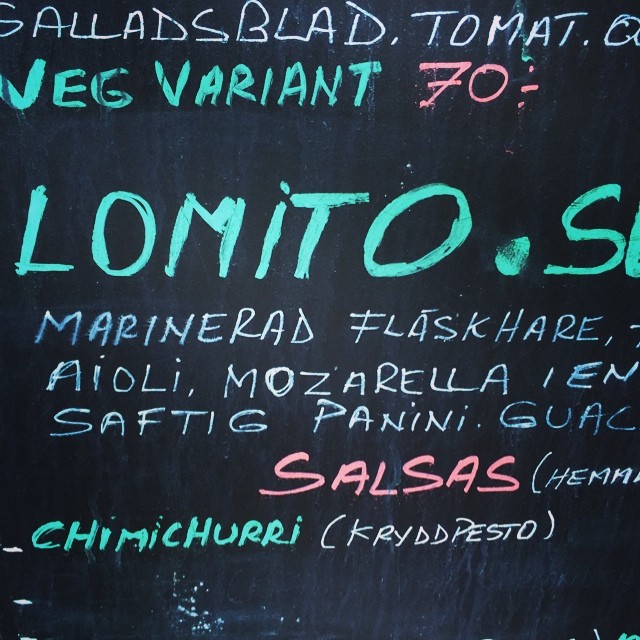 SALLADSBLAD. TOMAT.
VEG VARIANT 70:-
LOMITO.
MARINERAD FLÄSKHARE,
AIOLI, MOZARELLA I EN
SAFTIG PANINI. GUAC
SALSAS (HEMMA
- CHIMICHURRI (KRYDDPESTO)